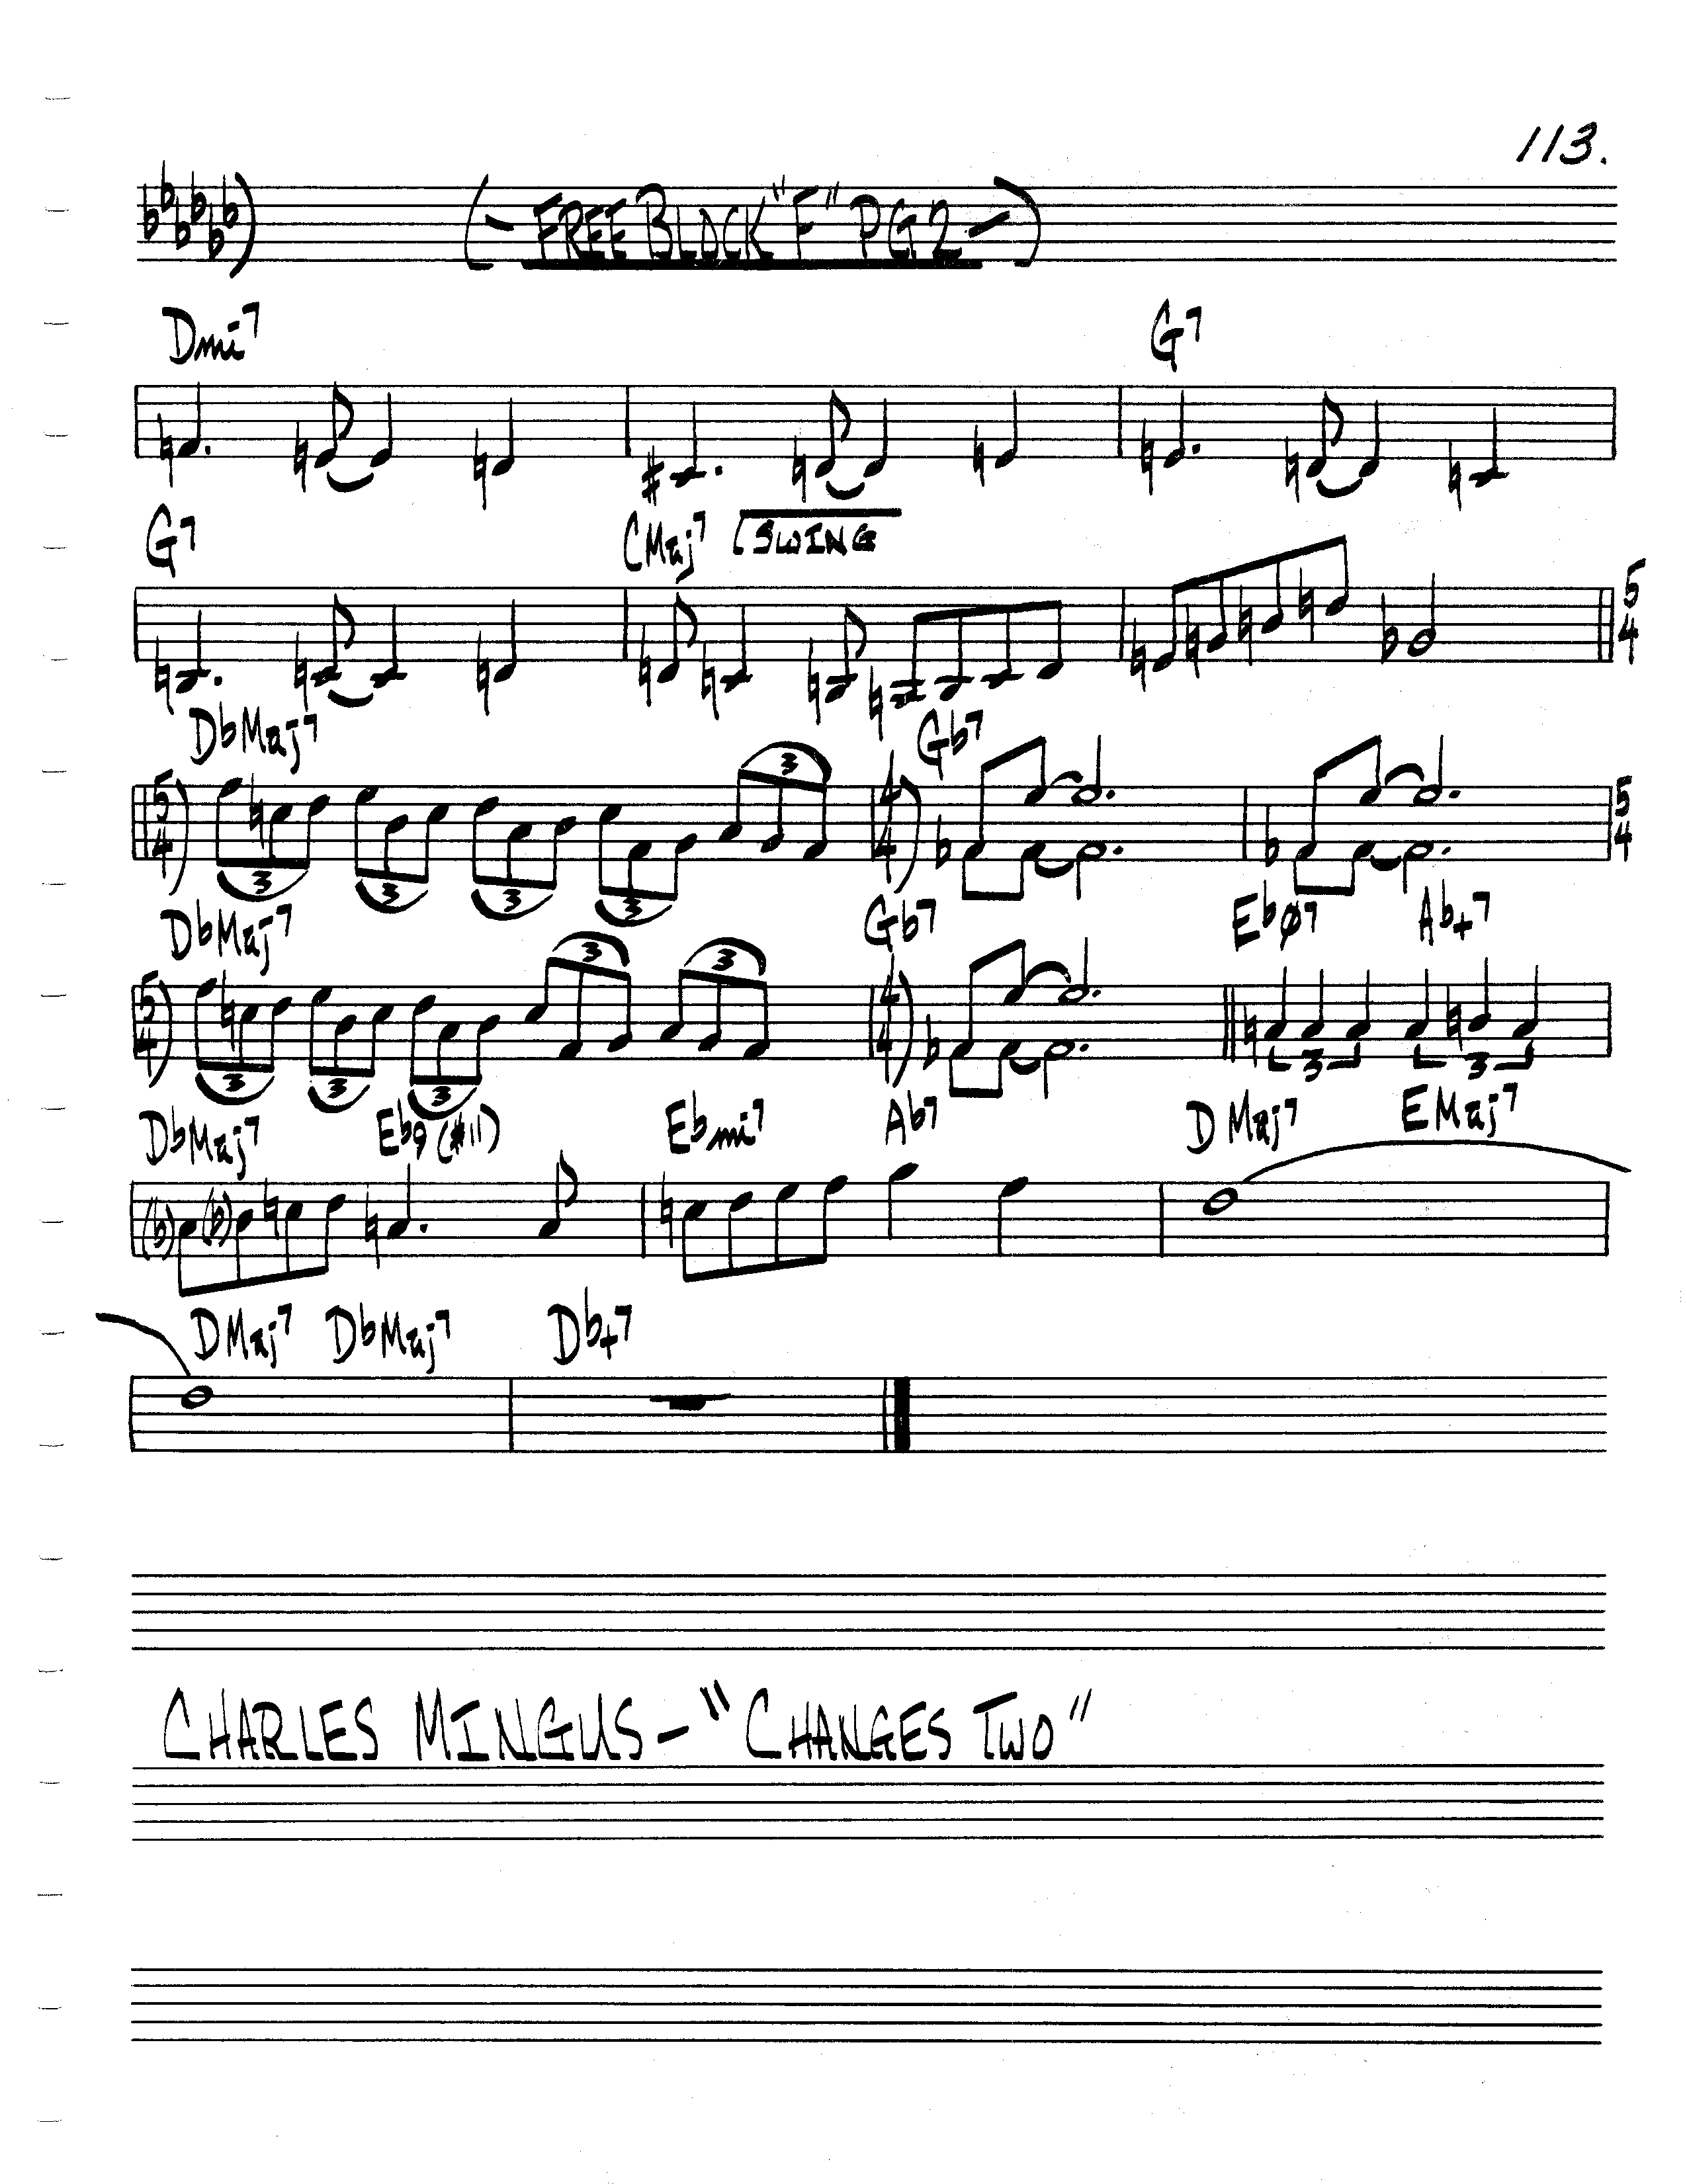 113.
(- FREE BLOCK "F" PG 2 -)
Dmi7 G7
G7 CMaj7 SWING
5 4
DbMaj7 Gb7
5 4 3 3 3 3 3 4 4 5 4
DbMaj7 Gb7 Ebø7 Ab+7
5 4 3 3 3 3 3 4 4 3 3
DbMaj7 Eb9(#11) Ebmi7 Ab7 DMaj7 EMaj7
DMaj7 DbMaj7 Db+7
CHARLES MINGUS - "CHANGES TWO"